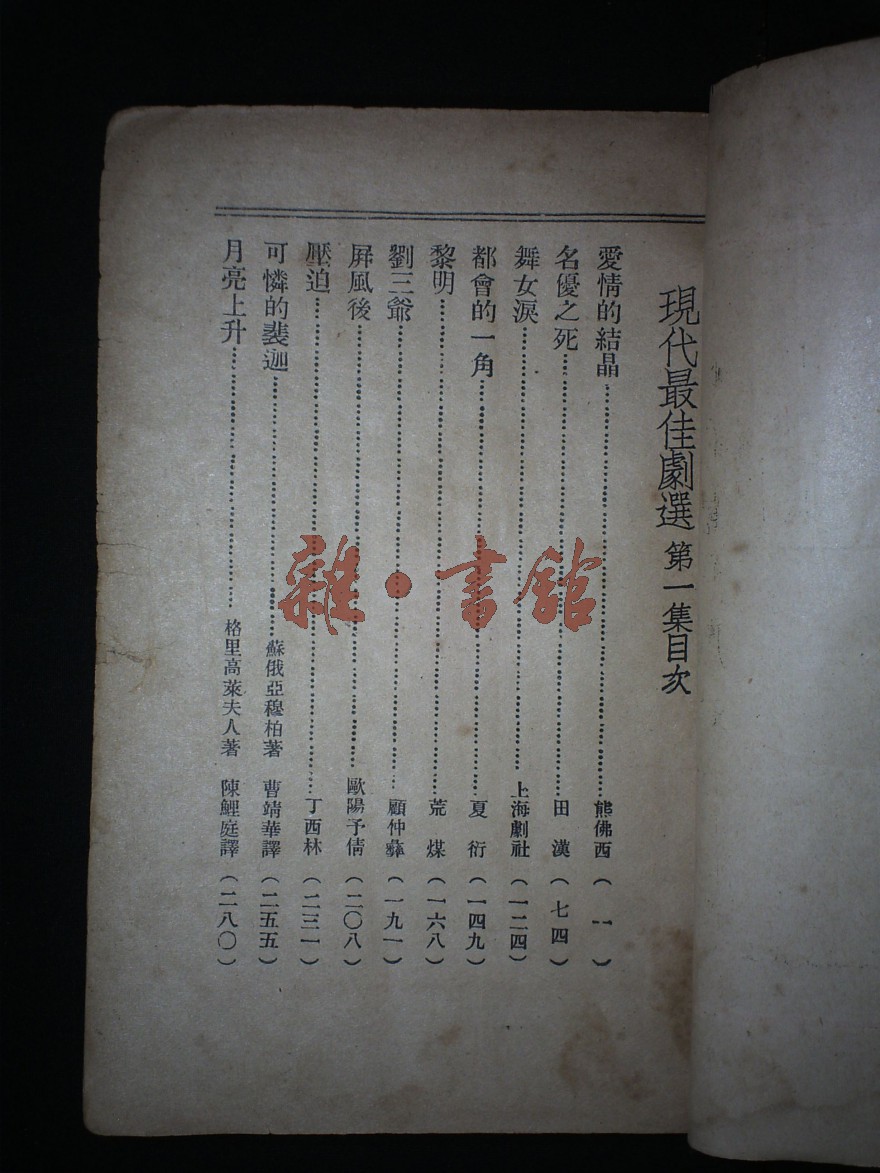 現代最佳劇選 第一集目次
愛情的結晶……熊佛西（一）
名優之死……田漢（七四）
舞女淚……上海劇社（一二四）
都會的一角……夏衍（一四九）
黎明……荒煤（一六八）
劉三爺……顧仲彝（一九一）
屏風後……歐陽予倩（二〇八）
壓迫……丁西林（二三一）
可憐的裴迦……蘇俄亞穆柏著 曹靖華譯（二五五）
月亮上升……格里高萊夫人著 陳鯉庭譯（二八〇）
雜·書館